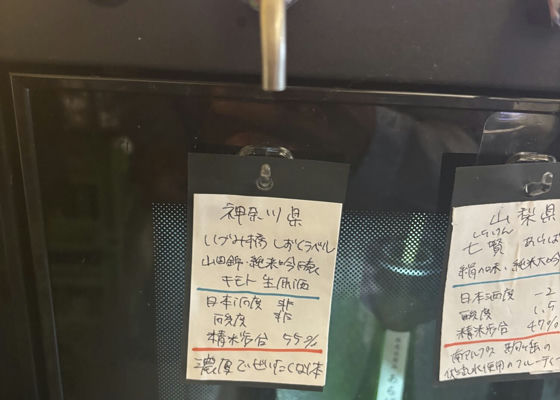 神奈川県
いづみ橋 しおくラベル
山田錦・純米吟醸
キモト 生原酒
日本酒度 非
酸度 非
精米歩合 55%
濃厚でぜいたくな1本
山梨県
しちけん
七賢
絹の味・純米大吟
日本酒度 -2
酸度 1.5
精米歩合 47%
南アルプス 駒ヶ岳の
伏流水使用のフルーティ